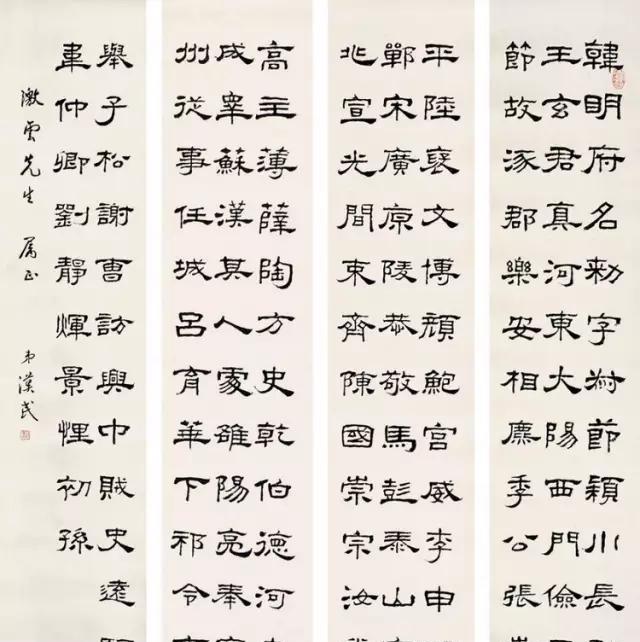 韓明府名勑字叔節穎川長
王玄君真河東大陽西門儉
節故涿郡樂安相麃季公張
平陸襃文博頏鮑宮威李申
鄲宋廣原陵恭敬馬彭泰山
北宣光間束齊陳國崇宗汝
高主薄薛陶方史乾伯德河
成宰蘇漢其人處雒陽亮奉
州從事任城呂育華下邳令
舉子松謝曹訪興中賊史遠
韋仲卿劉靜煇景悝初孫
澂雲先生 屬正 弟漢民